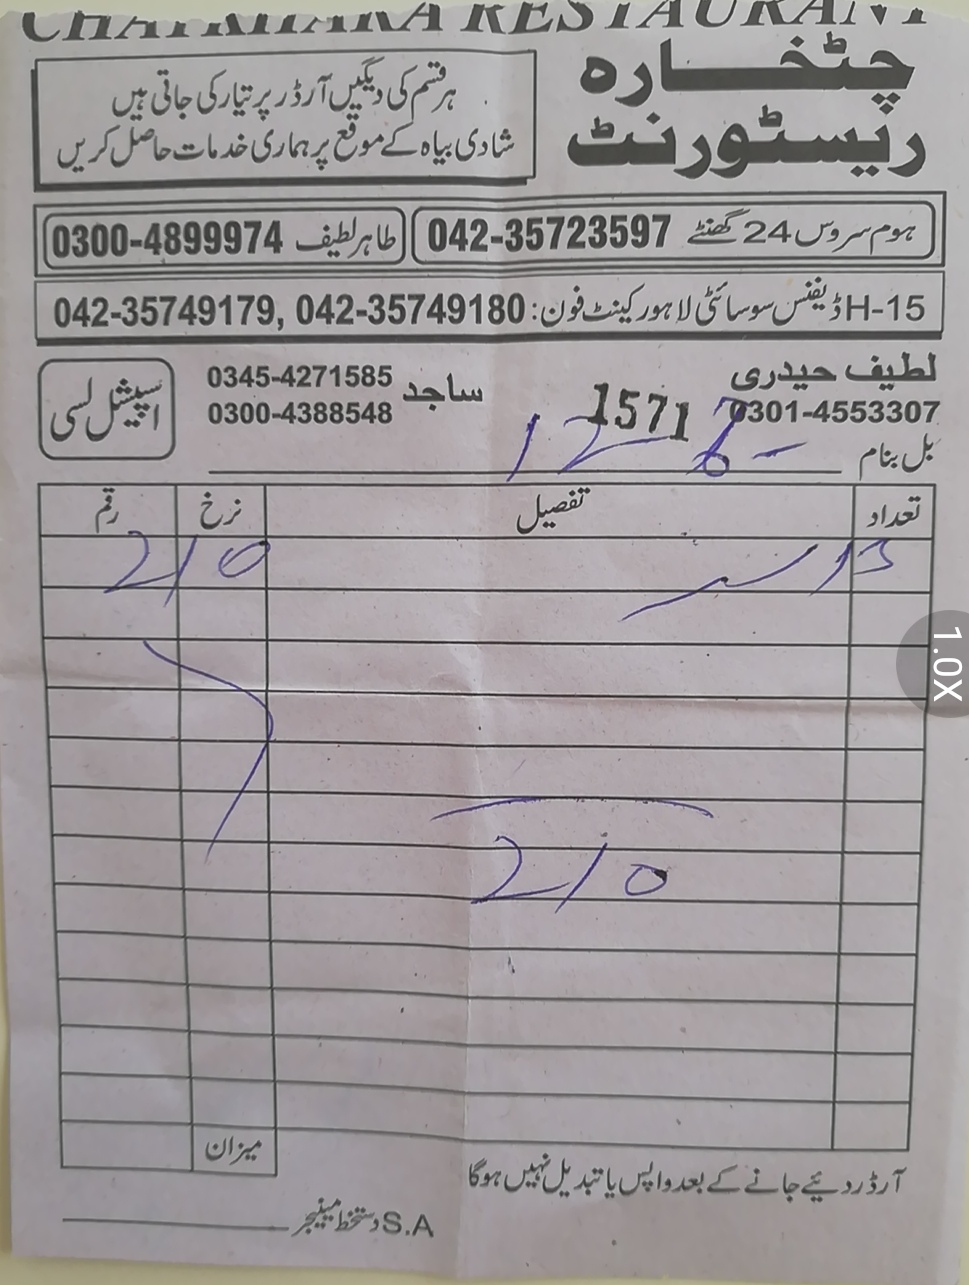 CHATKHARA RESTAURANT
چٹخارہ
ریسٹورنٹ
ہر قسم کی دیگیں آرڈر پر تیار کی جاتی ہیں
شادی بیاہ کے موقع پر ہماری خدمات حاصل کریں
ہوم سروس 24 گھنٹے 042-35723597
طاہر لطیف 0300-4899974
15-H ڈیفنس سوسائٹی لاہور کینٹ فون: 042-35749179, 042-35749180
لطیف حیدری
0301-4553307
ساجد 0345-4271585
0300-4388548
اسپیشل لسی
1571
بل بنام
تعداد تفصیل نرخ رقم
210
210
میزان
آرڈر دیئے جانے کے بعد واپس یا تبدیل نہیں ہوگا
S.A دستخط مینیجر
1.0X